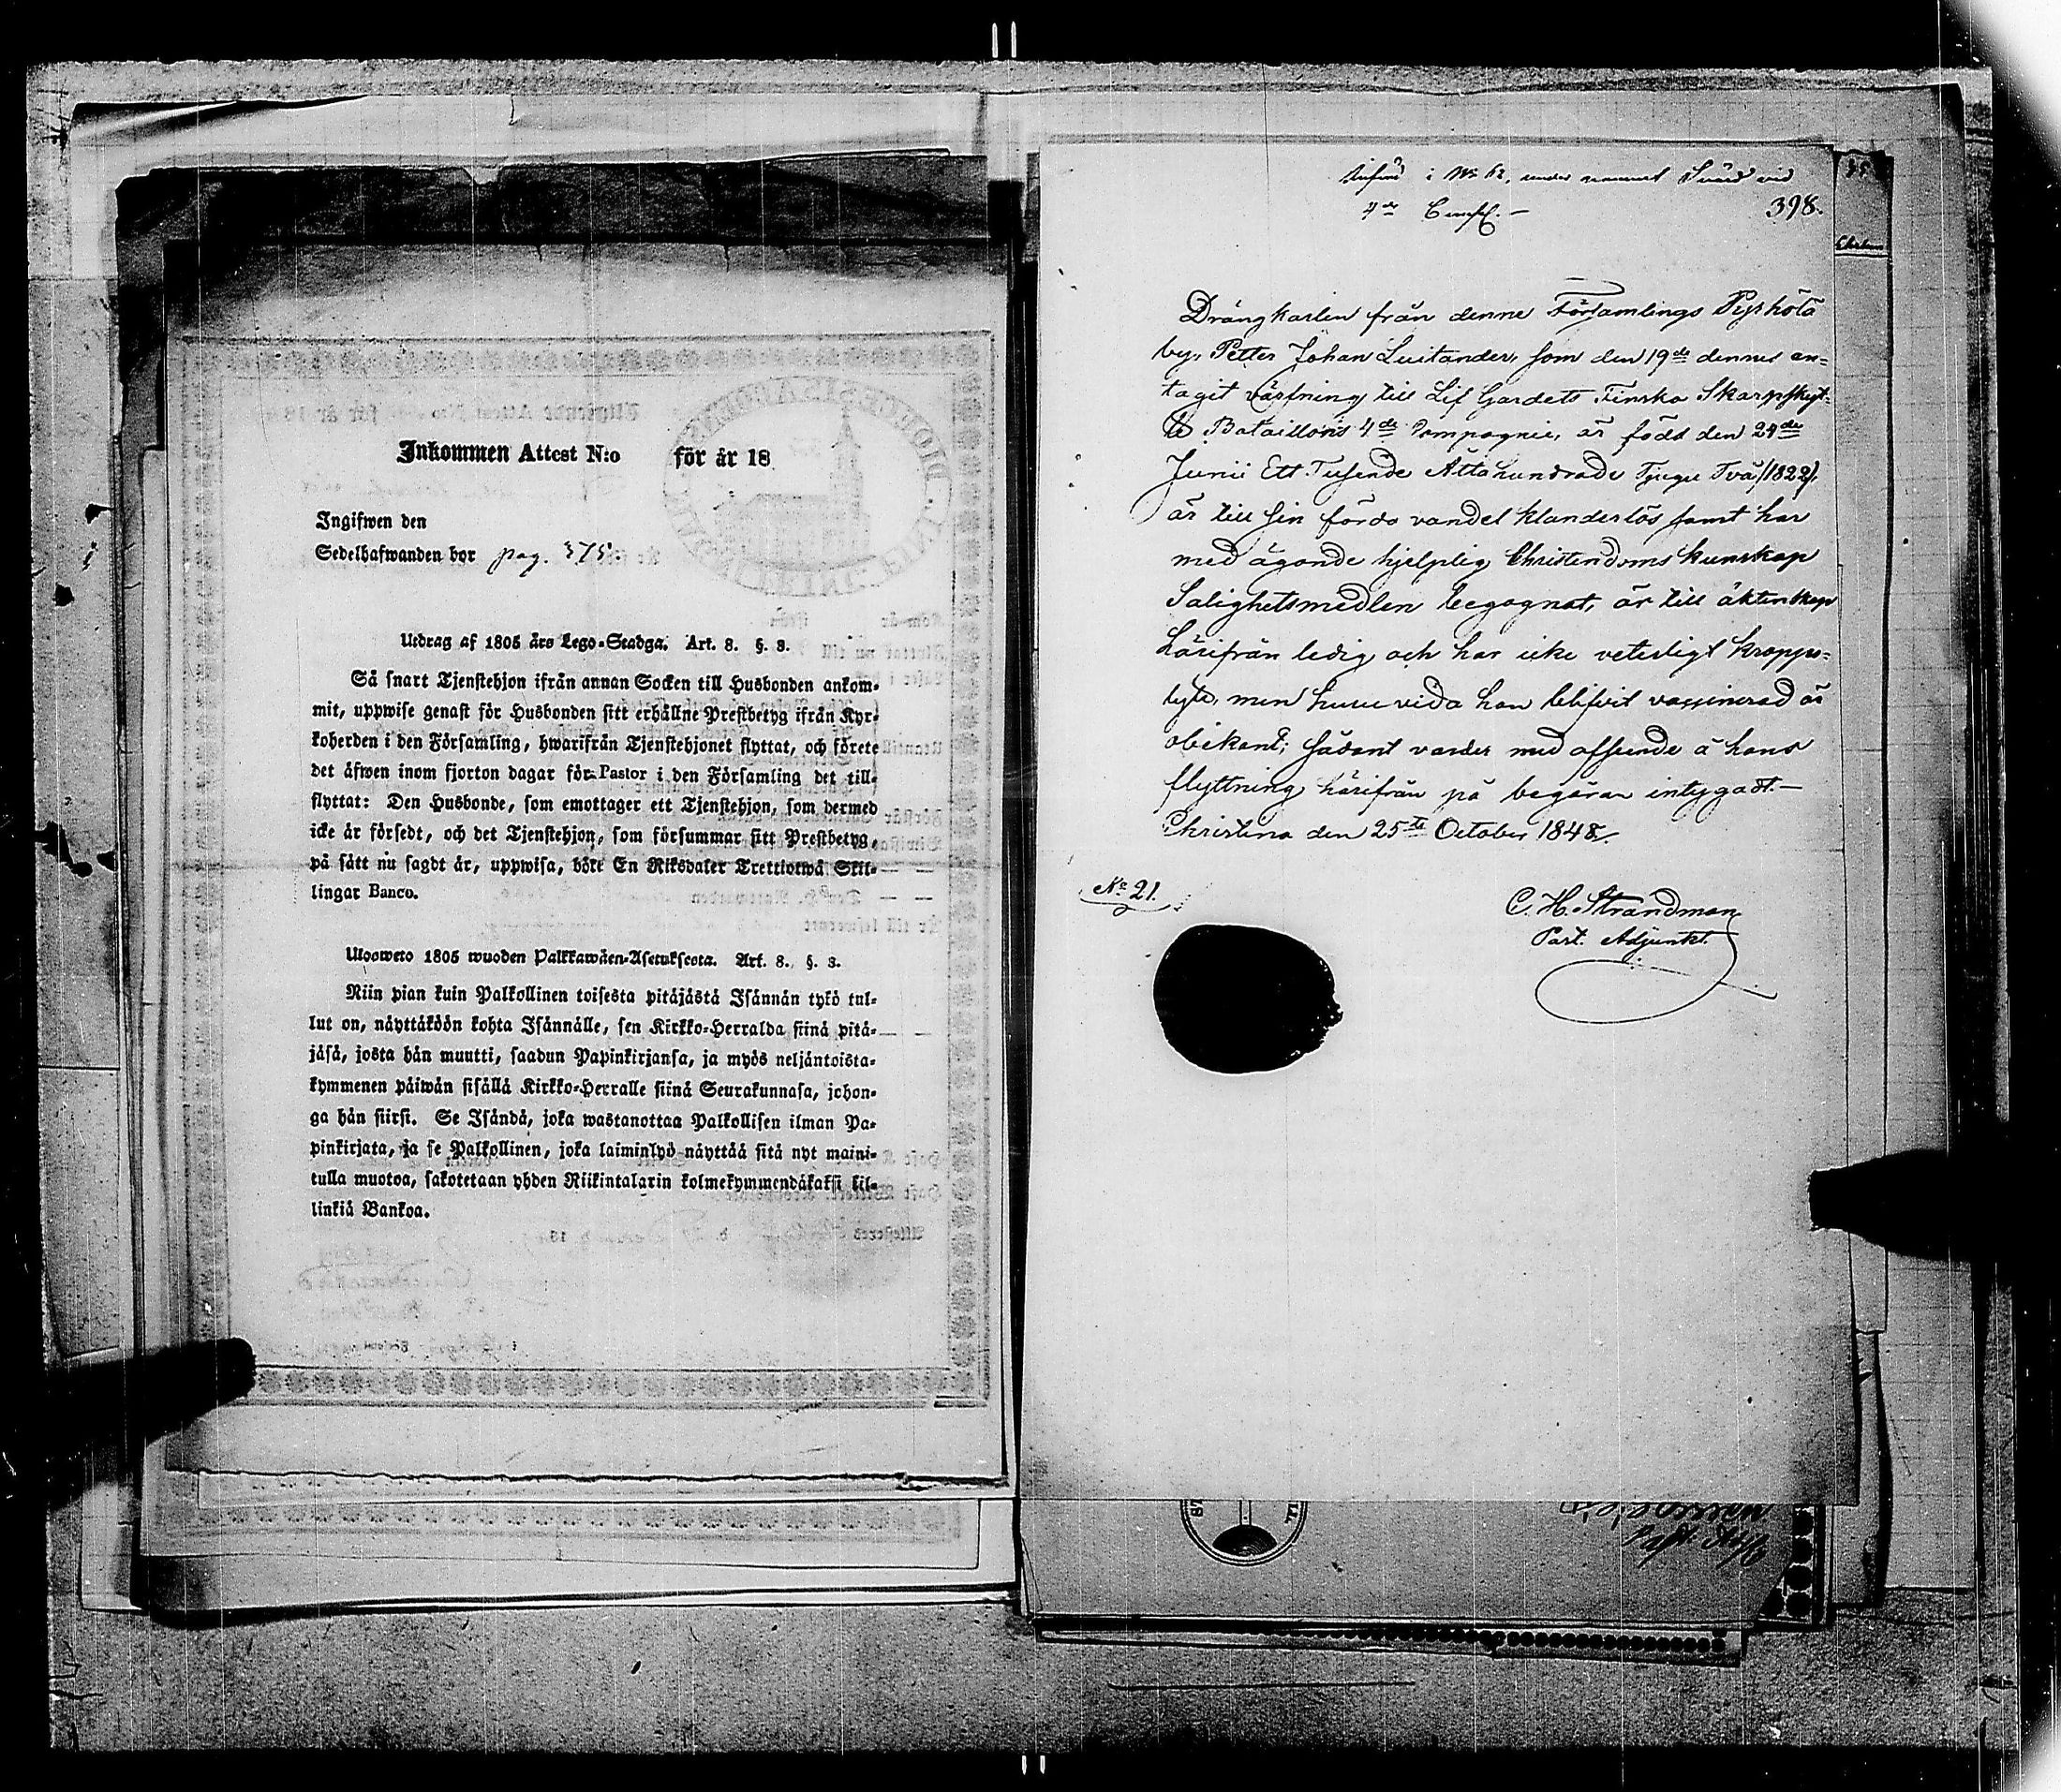 Inkommen Attest N:o för år 18
Ingifwen den
Sedelhafwanden bor pag. 375.
Utdrag af 1805 års Lego-Stadga. Art. 8. §. 3.
Så snart Tjenstehjon ifrån annan Socken till Husbonden ankom-
mit, uppwise genast för Husbonden sitt erhållne Prestbetyg ifrån Kyr-
koherden i den Församling, hwarifrån Tjenstehjonet flyttat, och förete
det äfwen inom fjorton dagar för Pastor i den Församling det till-
flyttat: Den Husbonde, som emottager ett Tjenstehjon, som dermed
icke är försedt, och det Tjenstehjon, som försummar sitt Prestbetyg,
på sätt nu sagdt är, uppwisa, böte En Riksdaler Trettiotwå Skil-
lingar Banco.
Ulosweto 1805 wuoden Palkkawäen-Asetuksesta. Art. 8. §. 3.
Niin pian kuin Palkollinen toisesta pitäjästä Isännän tykö tul-
lut on, näyttäköön kohta Isännälle, sen Kirkko-Herralda siinä pitä-
jäsä, josta hän muutti, saadun Papinkirjansa, ja myös neljäntoista-
kymmenen päiwän sisällä Kirkko-Herralle siinä Seurakunnasa, johon-
ga hän siirsi. Se Isändä, joka wastanottaa Palkollisen ilman Pa-
pinkirjata, ja se Palkollinen, joka laiminlyö näyttää sitä nyt maini-
tulla muotoa, sakotetaan yhden Riikintalarin kolmekymmendäkaksi kil-
linkiä Bankoa.
införd i No 62, under namnet Svärd vid
4de Comp. —
398.
Drängkarlen från denne Församlings Pyrhölä
by, Petter Johan Luitander, som den 19de dennes an-
tagit värfning till Lif Gardets Finska Skarpskyt-
te Bataillons 4de Compagnie, är född den 24de
Junii Ett Tusende Åttahundrade Tjugu Två (1822),
är till sin förda vandel klanderlös samt har
med ägande hjelplig Christendoms kunskap
Salighetsmedlen begagnat, är till äktenskap
härifrån ledig och har icke veterligt kropps-
lyte, men huru vida han blifvit vaccinerad är
obekant; sådant varder med afseende å hans
flyttning härifrån på begäran intygadt.—
Christina den 25te October 1848.
No 21.
C. H. Strandman
Past. Adjunkt.